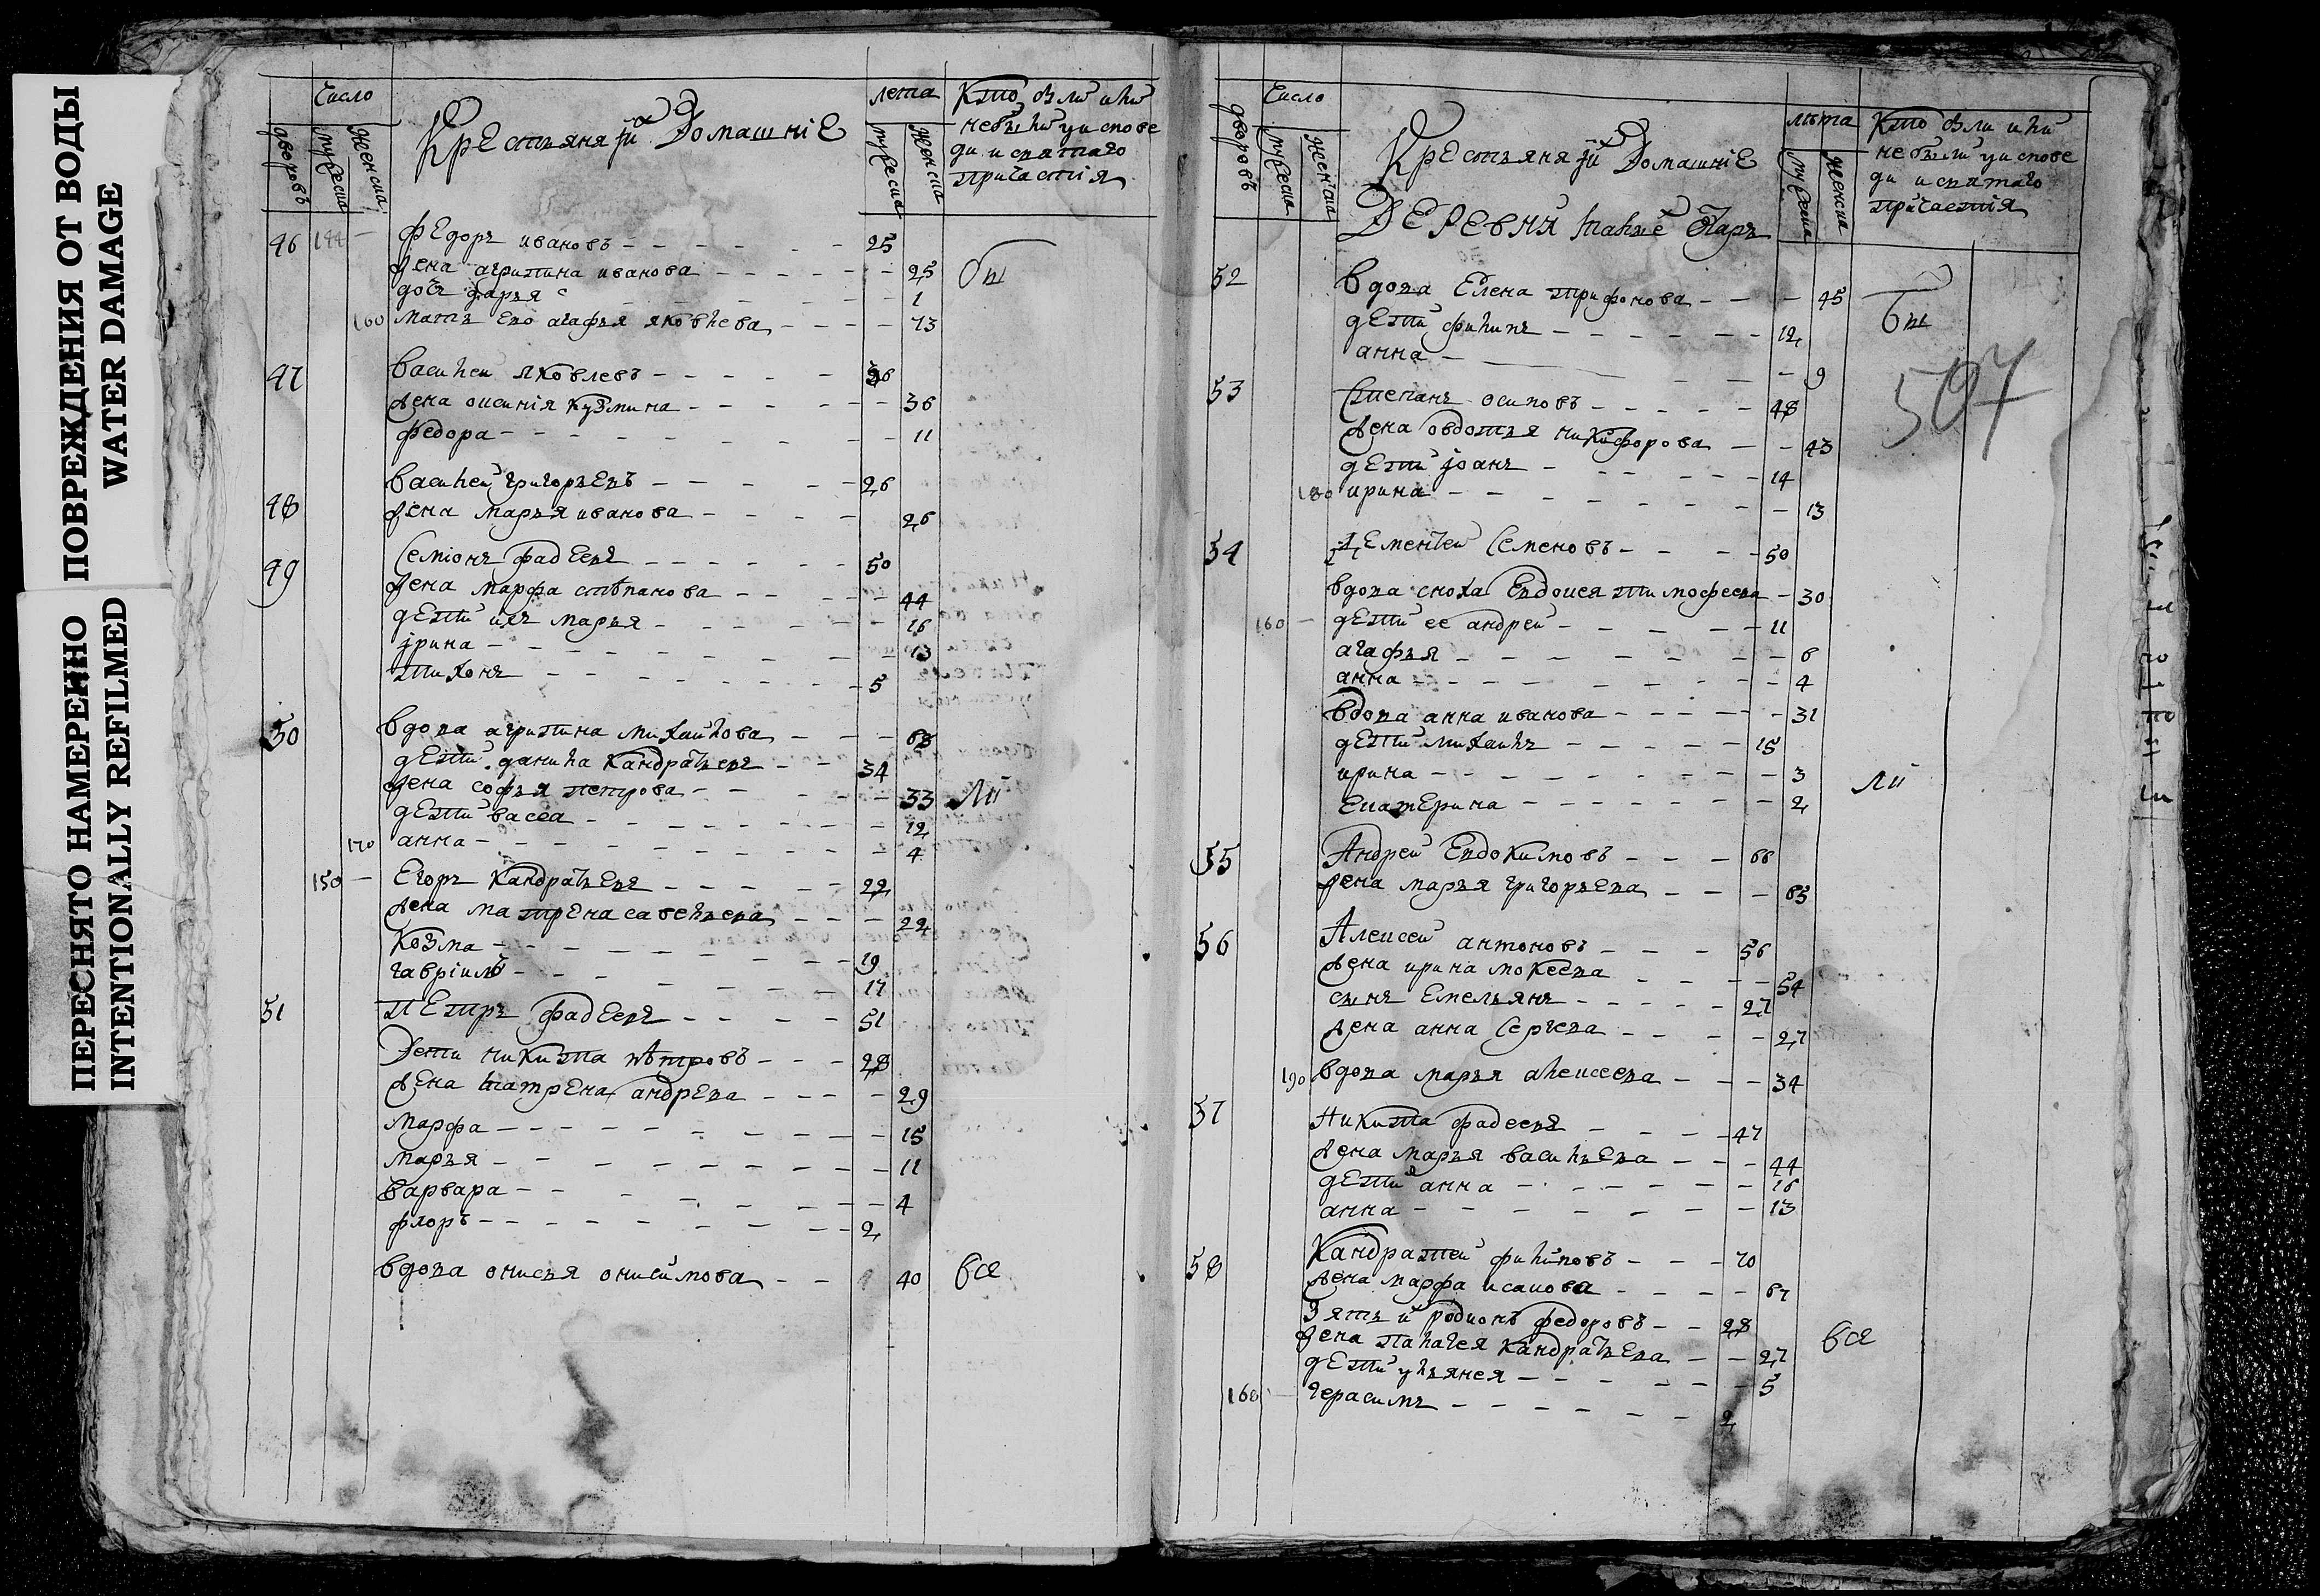 ПЕРЕСНЯТО НАМЕРЕННО ПОВРЕЖДЕНИЯ ОТ ВОДЫ
INTENTIONALLY REFILMED WATER DAMAGE
Число
дворовъ
мужеска
женска
Крестьяня и Домашніе
лета
мужеска
женска
Кто были или
небыли у испове
ди и святаго
причастія
46 144 Федоръ ивановъ 25
жена агрипина иванова 25 бы
дочь дарья 1
160 мать ево агафья яковлева 73
47 василеи яковлевъ 36
жена оксинія кузмина 36
федора 11
48 василеи григорьевъ 26
жена марья иванова 26
49 Семіонъ фадеевъ 50
жена марфа степанова 44
дети ихъ марья 16
ірина 13
тихонъ 5
50 вдова агрипина михаилова 68
дети данила кандратьевъ 34
жена софья петрова 33 ли
дети васса 12
170 анна 4
150 Егоръ кандратьевъ 22
жена матрена савельева 22
козма 19
гавріилъ 17
51 Петръ фадеевъ 51
Дети никита петровъ 28
жена матрена андрева 29
марфа 15
марья 11
варвара 4
флоръ 2
вдова онисья онисимова 40 все
Число
дворовъ
мужеска
женска
Крестьяня и Домашніе
лѣта
мужеска
женска
Кто были или
небыли у испове
ди и святаго
причастія
Деревни Яаръ
52 вдова Елена трифонова 45 бы
дети филипъ 12
анна 9
507
53 Степанъ осиповъ 48
жена овдотья никифорова 43
дети іоанъ 14
180 ирина 13
54 Дементеи Семеновъ 50
вдова сноха Евдокея тимофеева 30
160 дети ее андреи 11
агафья 6
анна 4
вдова анна иванова 31
дети михаилъ 15
ирина 3 ли
екатерина 2
55 Андреи Евдокимовъ 66
жена марья григорьева 65
56 Алексеи антоновъ 56
жена ирина мокеева 54
сынъ Емельянъ 27
жена анна Сергева 27
190 вдова марья алексеева 34
57 Никита фадеевъ 47
жена марья васильева 44
дети анна 16
анна 13
58 Кандратеи филиповъ 70
жена марфа исакова 67
Зять и родионъ федоровъ 28
жена палагея кандратьева 27 все
дети ульянея 5
160 герасимъ 2